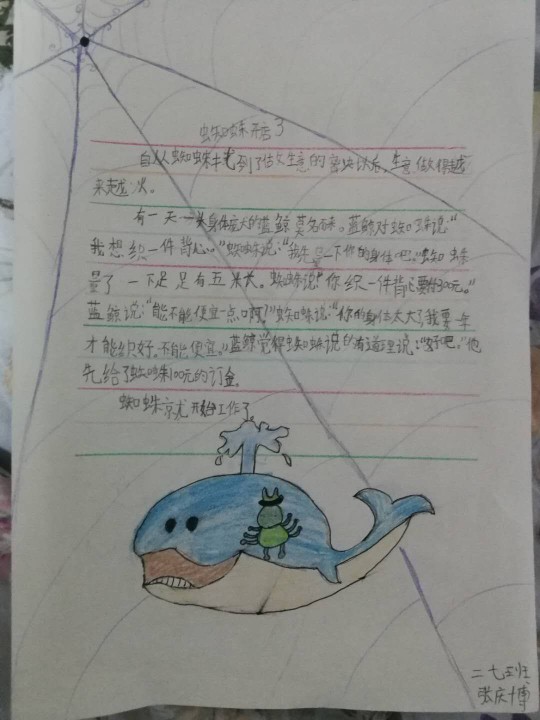 蜘蛛开店了
自从蜘蛛找到了做生意的窍门以后，生意做得越
来越火。
有一天一头身体庞大的蓝鲸莫名而来。蓝鲸对蜘蛛说：“
我想织一件背心。”蜘蛛说：“我先量一下你的身体吧。”蜘蛛
量了一下足足有五米长。蜘蛛说：“你织一件背心要付200元。”
蓝鲸说：“能不能便宜一点啊？”蜘蛛说：“你的身体太大了我要一年
才能织好，不能便宜。”蓝鲸觉得蜘蛛说的有道理说：“好吧。”他
先给了蜘蛛100元的订金。
蜘蛛就开始工作了
二七班
张庆博